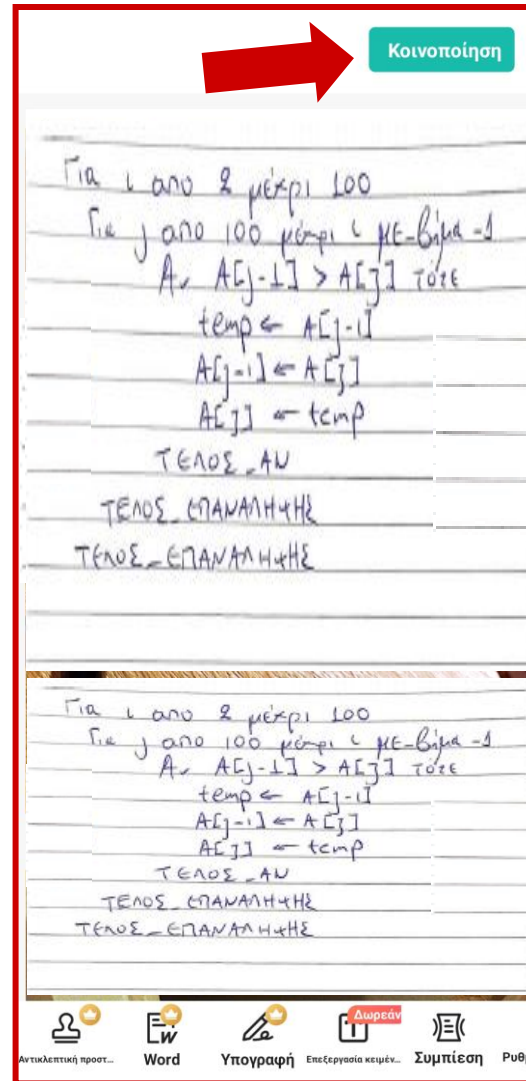 Κοινοποίηση
Για ι απο 2 μέχρι 100
Για j απο 100 μέχρι ι με-βήμα -1
Αν A[j-1] > A[j] τότε
temp ← A[j-1]
A[j-1] ← A[j]
A[j] ← temp
ΤΕΛΟΣ_ΑΝ
ΤΕΛΟΣ_ΕΠΑΝΑΛΗΨΗΣ
ΤΕΛΟΣ_ΕΠΑΝΑΛΗΨΗΣ
Για ι απο 2 μέχρι 100
Για j απο 100 μέχρι ι με-βήμα -1
Αν A[j-1] > A[j] τότε
temp ← A[j-1]
A[j-1] ← A[j]
A[j] ← temp
ΤΕΛΟΣ_ΑΝ
ΤΕΛΟΣ_ΕΠΑΝΑΛΗΨΗΣ
ΤΕΛΟΣ_ΕΠΑΝΑΛΗΨΗΣ
Δωρεάν
W
Αντικλεπτική προστ... Word Υπογραφή Επεξεργασία κειμέν... Συμπίεση Ρυθμ